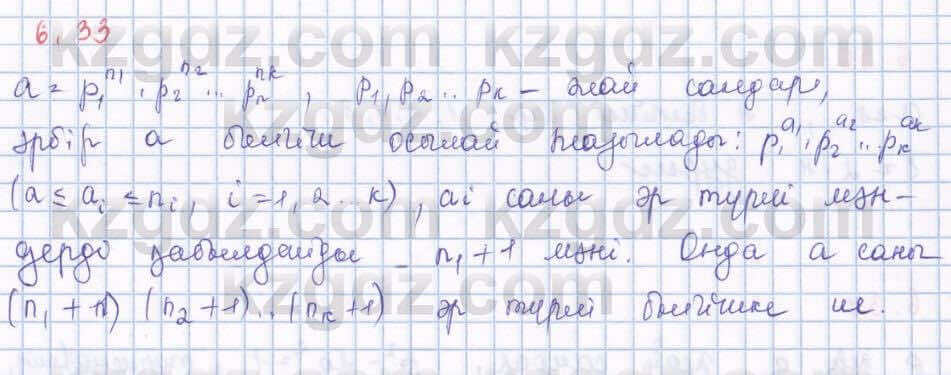 6.33
a = p₁ⁿ¹ · p₂ⁿ² ... pₙⁿᵏ, p₁, p₂ .. pₖ – жай сандар,
әрбір a бөлгіш осылай жазылады: p₁ᵃ¹, p₂ᵃ² .. pₖᵃᵏ
(a ≤ aᵢ ≤ nᵢ, i = 1, 2 .. k), aᵢ саны әр түрлі мән-
дерді қабылдайды – n₁ + 1 мәні. Онда a саны
(n₁ + 1) (n₂ + 1) .. (nₖ + 1) әр түрлі бөлгішке ие.
kzgdz.com kzgdz.com